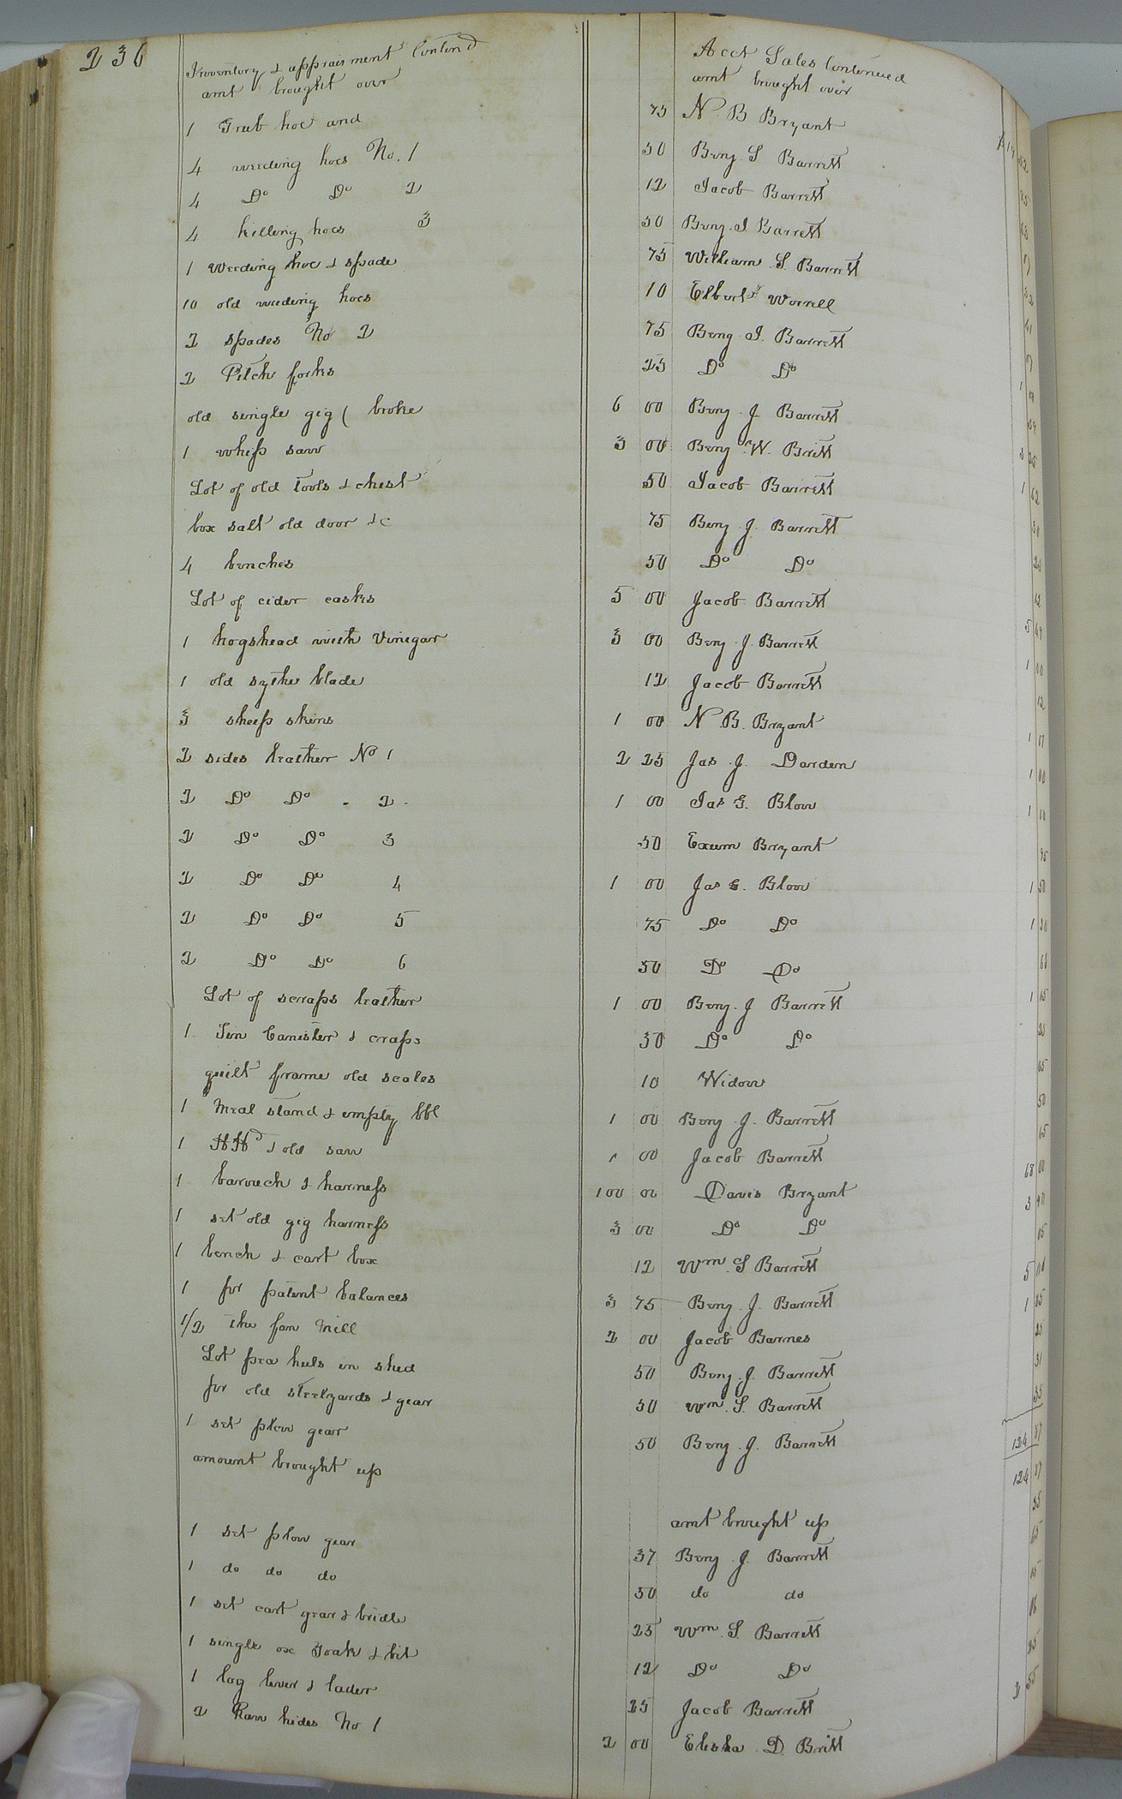 236
Inventory & appraisment Contond Acct Sales Continued
amt brought over amt brought over
1 Grub hoe and 75 N B Bryant
4 weeding hoes No. 1 50 Benj S Barrett
4 Do Do 2 12 Jacob Barrett
4 hilling hoes 3 50 Benj. J Barrett
1 weeding hoe & spade 75 William S. Barrett
10 old weeding hoes 10 Elbert Worrell
2 spades No 2 75 Benj J. Barrett
2 Pitch forks 25 Do Do
old single gig ( broke 6 00 Benj. J Barrett
1 whip saw 3 00 Benj. W. Britt
Lot of old Tools & chest 50 Jacob Barrett
box salt old door &c 75 Benj. J. Barrett
4 benches 50 Do Do
Lot of cider casks 5 00 Jacob Barrett
1 hogshead with Vinegar 3 00 Benj. J. Barrett
1 old sythe blade 12 Jacob Barrett
3 sheep skins 1 00 N. B. Bryant
2 sides leather No 1 2 25 Jas. J. Darden
2 Do Do - 2 - 1 00 Jas G. Blow
2 Do Do 3 50 Exum Bryant
2 Do Do 4 1 00 Jas G. Blow
2 Do Do 5 75 Do Do
2 Do Do 6 50 Do Do
Lot of scraps leather 1 00 Benj. J Barrett
1 Tin Canister & craps 30 Do Do
quilt frame old scales 10 Widow
1 Meal stand & empty bbl 1 00 Benj. J. Barrett
1 HHd & old saw 1 00 Jacob Barrett
1 barouch & harness 100 00 Davis Bryant
1 set old gig harness 3 00 Do Do
1 bench & cart box 12 Wm. S Barrett
1 pr patent balances 3 75 Benj. J. Barrett
1/2 the fan Mill 2 00 Jacob Barnes
Lot pea huls in shed 50 Benj. J. Barrett
pr old steelyards & gear 50 Wm. S. Barrett
1 set plow gear 50 Benj. J. Barrett
amount brought up
amt brought up
1 set plow gear 37 Benj. J. Barrett
1 do do do 50 do do
1 set cart gear & bridle 25 Wm. S. Barrett
1 single ox Yoak & bit 12 Do Do
1 log lever & lader 25 Jacob Barrett
2 Raw hides No 1 2 00 Elisha D. Britt